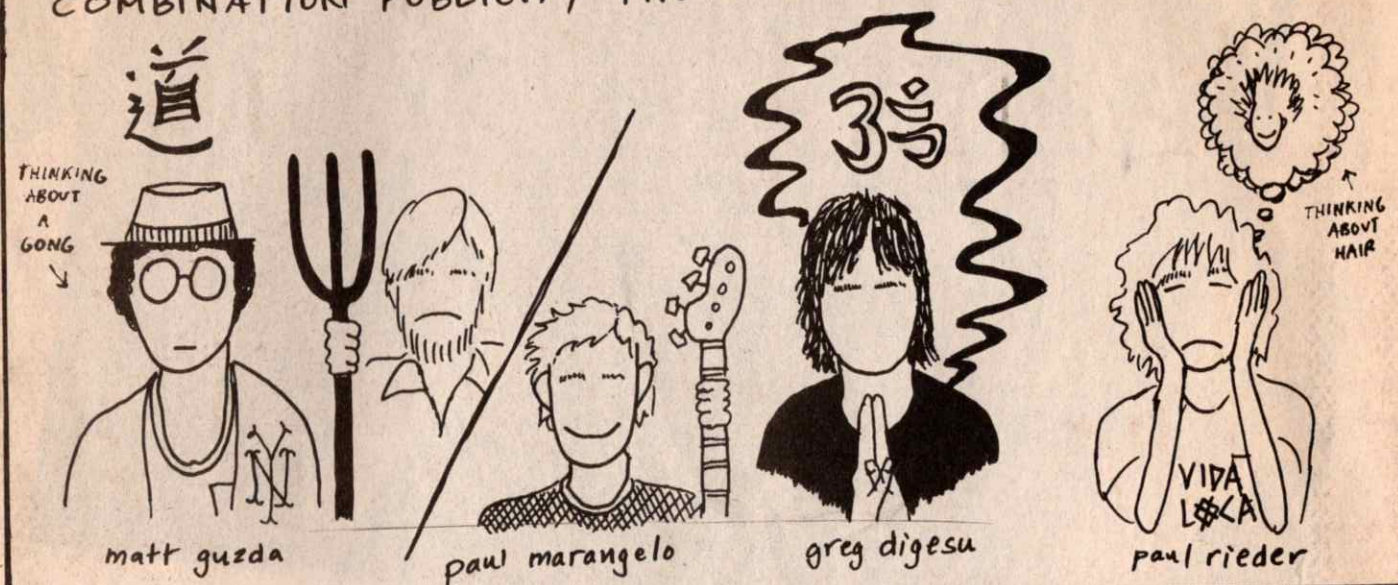 COMBINATION PUBLICITY
道
THINKING
ABOUT
A
GONG
NY
ॐ
THINKING
ABOUT
HAIR
VIDA
LOCA
matt guzda
paul marangelo
greg digesu
paul rieder